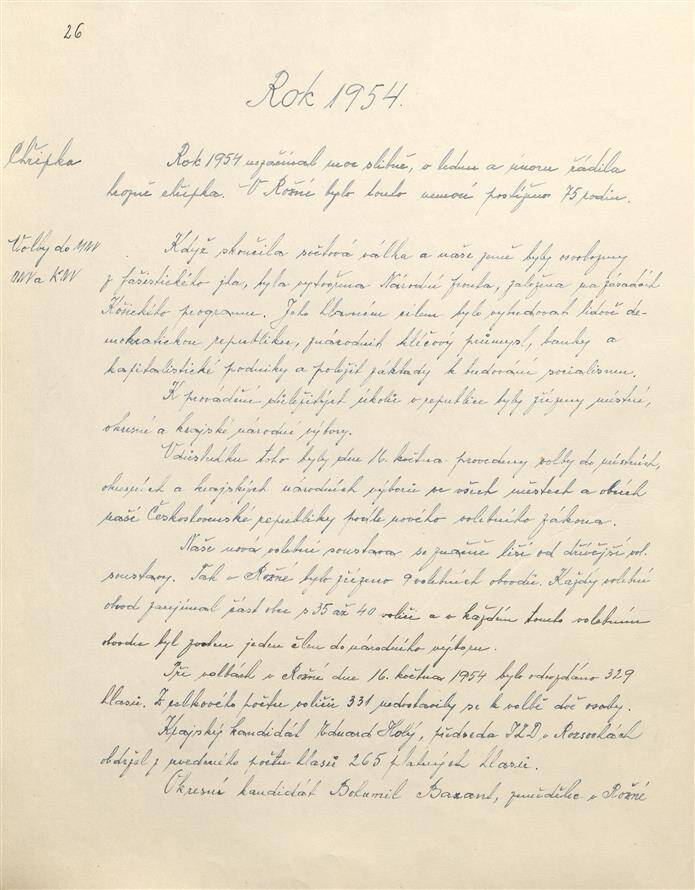 26
Rok 1954.
Chřipka
Rok 1954 nezačínal moc slibně, v lednu a únoru řádila
hrozně chřipka. V Rožné bylo touto nemocí postiženo 75 rodin.
Volby do MNV
ONV a KNV
Když skončila světová válka a naše země byly osvobozeny
z fašistického jha, byla vytvořena Národní fronta, založena na zásadách
Košického programu. Jeho hlavním cílem bylo vybudovat lidově de-
mokratickou republiku, znárodnit klíčový průmysl, banky a
kapitalistické podniky a položit základy k budování socialismu.
K provádění důležitých úkolů v republice byly zřízeny místní,
okresní a krajské národní výbory.
V důsledku toho byly dne 16. května provedeny volby do místních,
okresních a krajských národních výborů ve všech městech a obcích
naší Československé republiky podle nového volebního zákona.
Naše nová volební soustava se značně liší od dřívější vol.
soustavy. Tak v Rožné bylo zřízeno 9 volebních obvodů. Každý volební
obvod zaujímal část obce s 35 až 40 voliči a v každém tomto volebním
obvodu byl zvolen jeden člen do národního výboru.
Při volbách v Rožné dne 16. května 1954 bylo odevzdáno 329
hlasů. Z celkového počtu voličů 331 nedostavily se k volbě dvě osoby.
Krajský kandidát Eduard Holý, předseda JZD v Rozsochách
obdržel z uvedeného počtu hlasů 265 platných hlasů.
Okresní kandidát Bohumil Bazant, zemědělec v Rožné